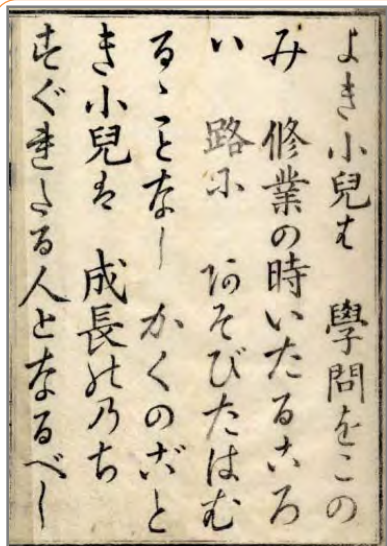 よき小兒は 學問をこの
み 修業の時いたるころ
ハ 路に あそびたはむ
るゝことなし かくのごと
き小兒は 成長ののち
すぐれたる人となるべし